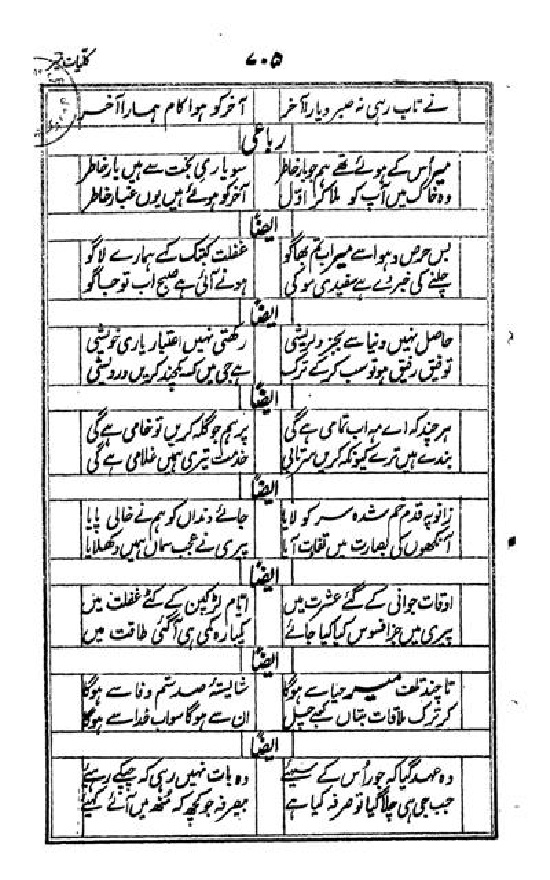 ۷۰۵
کلیات میر
نے تاب رہی نہ صبر و یارا آخر آخر کو ہوا کام ہمارا آخر
رباعی
میر اُس کے ہوئے تھے ہم جو یار خاطر سو یاری بخت سے ہیں بار خاطر
وہ خاک میں آپ کو ملا کر اوّل آخر کو ہوئے ہیں یوں غبار خاطر
ایضاً
بس حرص و ہوا سے میر اب تم بھاگو غفلت کبتک کے ہمارے لاگو
چلنے کی خبر دے ہے سفیدی مو کی ہونے آئی ہے صبح اب تو جاگو
ایضاً
حاصل نہیں دنیا سے بجز دلریشی رکھتی نہیں اعتبار یاری خویشی
توفیق رفیق ہو تو سب کر کے ترک ہے جی میں کہ یکچند کریں درویشی
ایضاً
ہر چند کہ اے مہ اب تمامی ہے گی پر ہم جو گلہ کریں تو خامی ہے گی
بندے ہیں ترے کیونکہ کریں سرتابی خدمت تیری ہمیں غلامی ہے گی
ایضاً
زانو پہ قدم خم شدہ سر کو لایا جائے دنداں کو ہم نے خالی پایا
آنکھوں کی بصارت میں تفاوت آیا پیری نے عجب سماں ہمیں دکھلایا
ایضاً
اوقات جوانی کے گئے عشرت میں ایّام لڑکپن کے کٹے غفلت میں
پیری میں جز افسوس کیا کیا جائے یکبارہ کمی ہی آگئی طاقت میں
ایضاً
تا چند تلف میر حیا سے ہوگا شایستۂ صد ستم وفا سے ہوگا
کر ترک ملاقات بتاں کعبے چل ان سے ہوگا سو اب خدا سے ہوگا
ایضاً
وہ عہد گیا کہ جور اُس کے سہیے وہ بات نہیں رہی کہ چپکے رہیے
جب جی ہی چلا گیا تو صرفہ کیا ہے بیصرفہ جو کچھ کہ منھ میں آئے کہیے